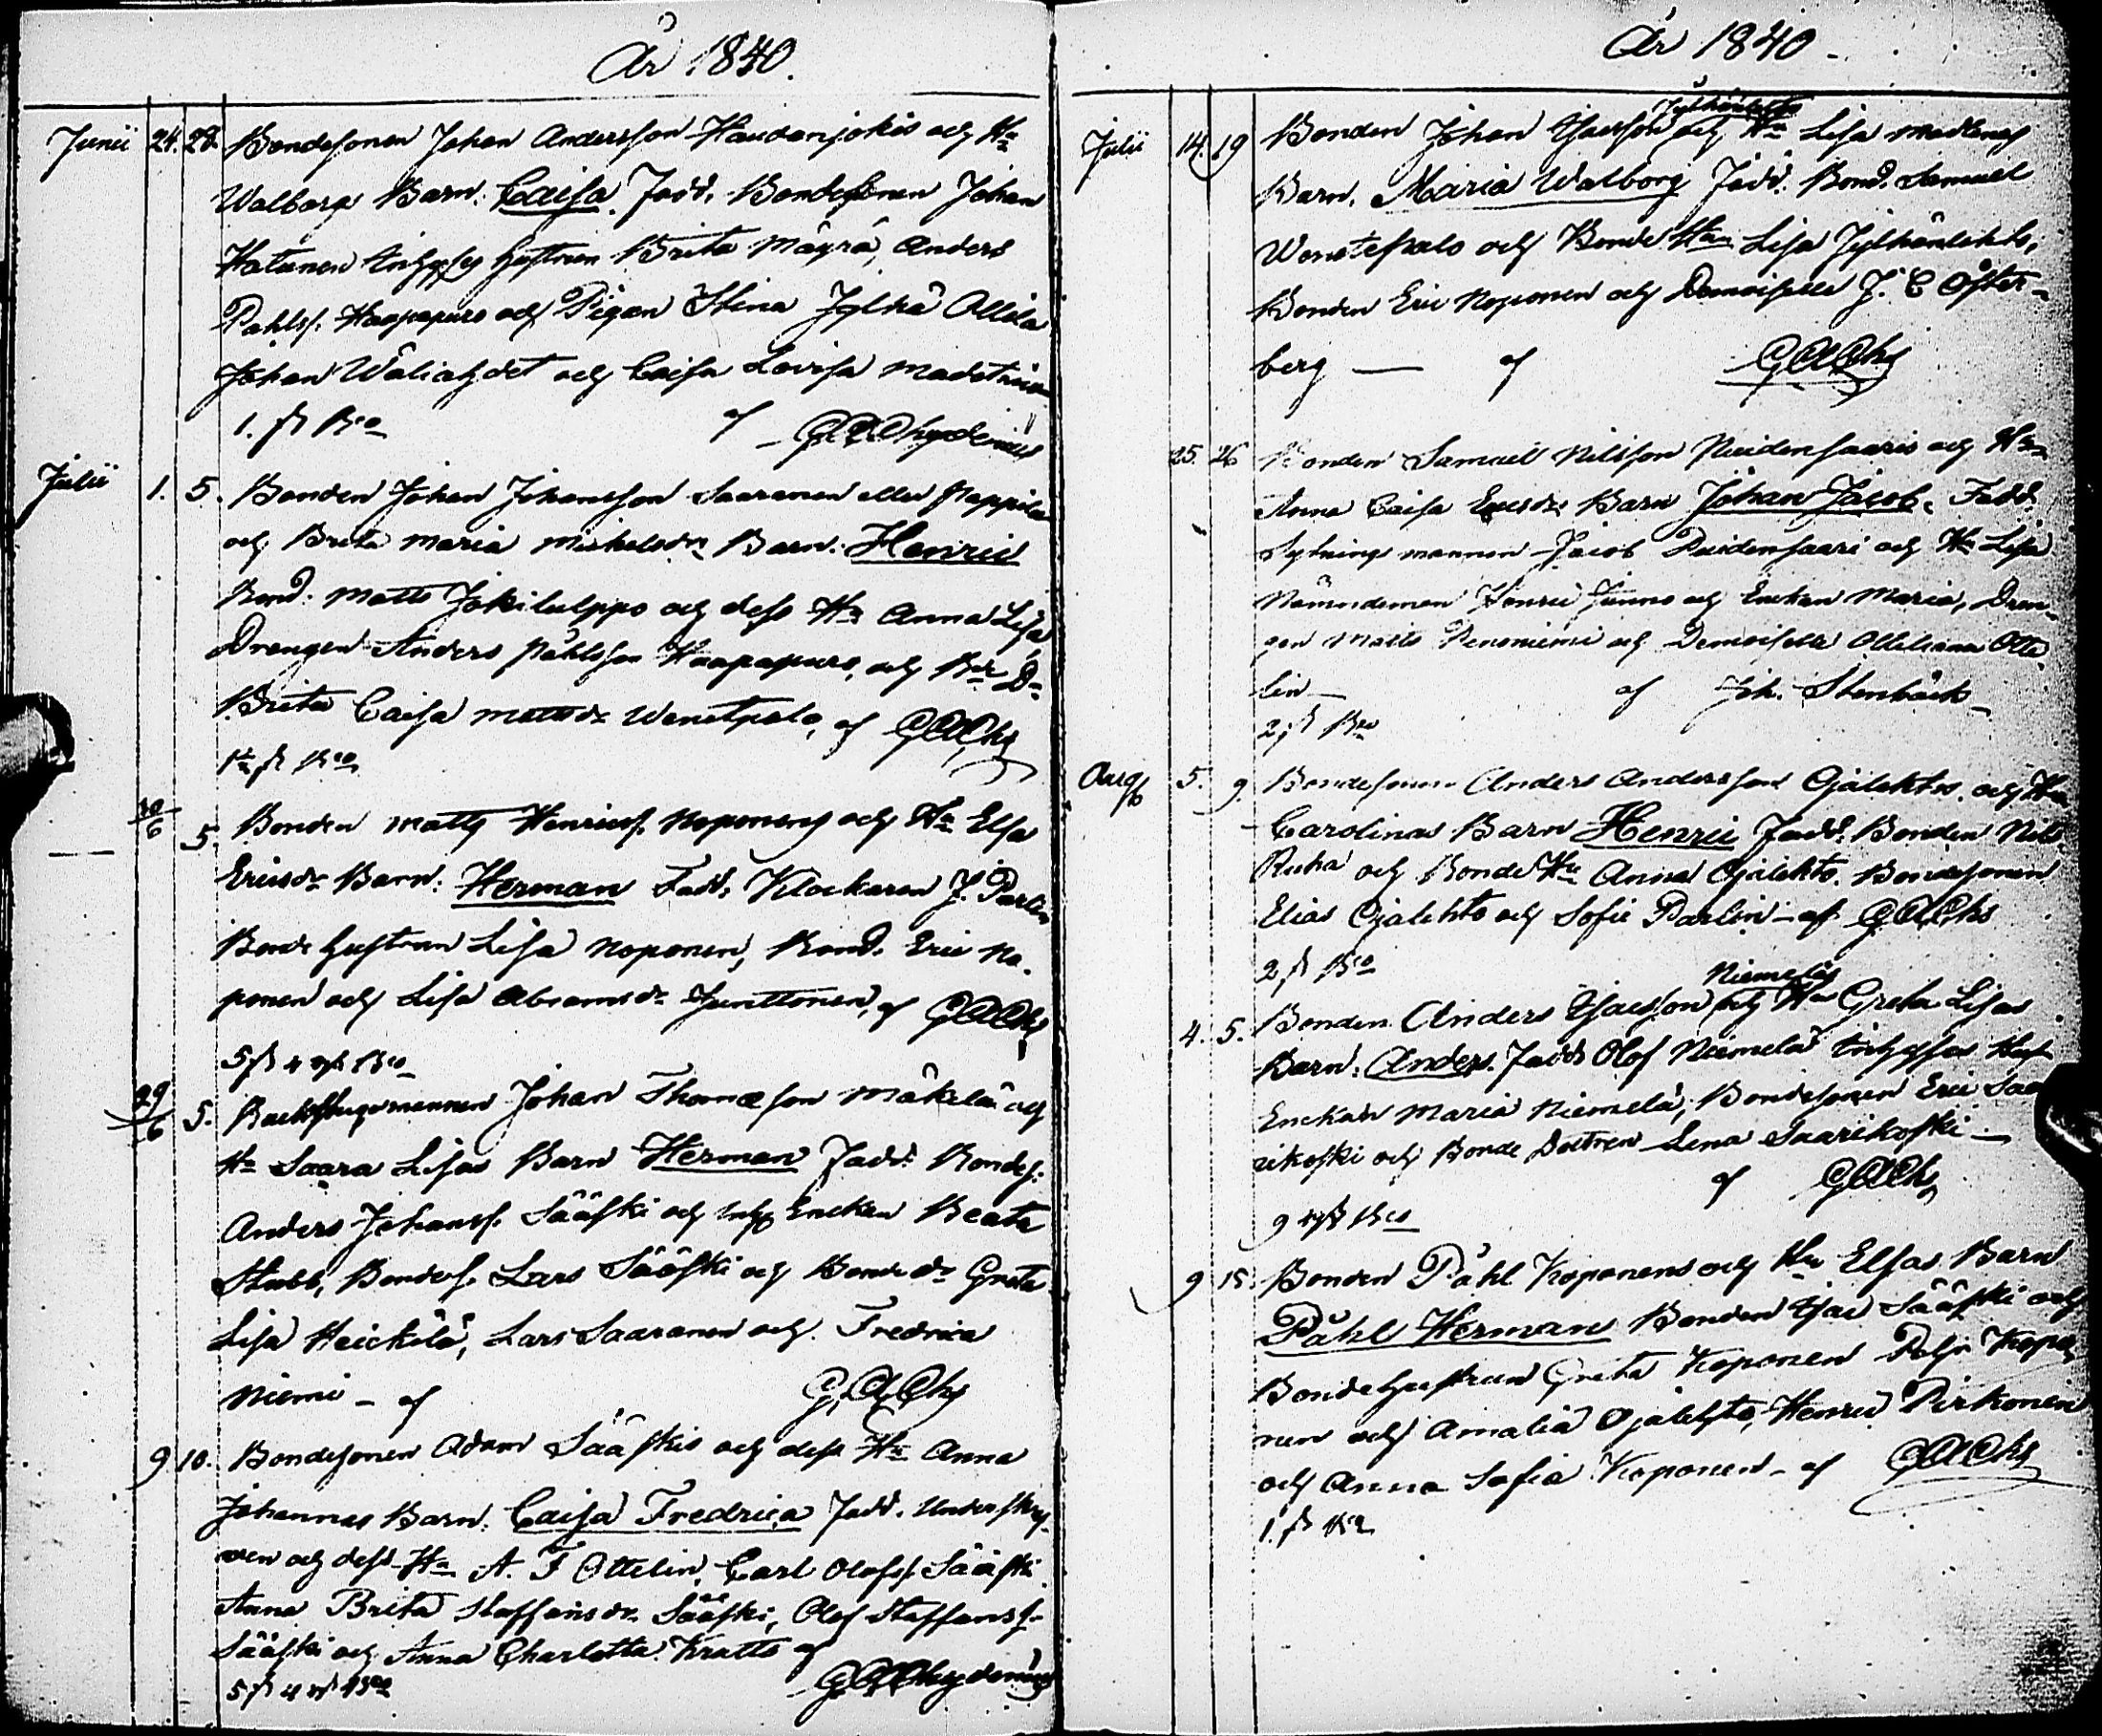 År 1840.
Junii 24. 28. Bondesonen Johan Andersson Haudanjokis och Hu
Walborgs Barn: Caisa. Fadd. Bondesonen Johan
Hatunen Hustrun Brita Mäyrä, Anders
Påhlss. Haapapuro och Pigan Stina Jylhä Ollila
Johan Wäliahdet och Caisa Lovisa
1. sk Bco af G A Chydenius
Julii 1. 5. Bonden Johan Johansson Saaranen eller Pappila
och Brita Maria Mickelsdr Barn: Henric
Bond: Matts Jokikulppo och dess Hu Anna Lisa
Drengen Anders Påhlsson Haapapuro, och Bde Dr
Brita Caisa Mattsdr Wenetpalo, af G A Chs
sk Bco
30/6 5. Bonden Matts Henricss. Noponens och Hu Elsa
Ericsdr Barn: Herman Fadd. Klockaren J. Parlin
Bonde Hustrun Lisa Noponen, Bond. Eric No-
ponen och Lisa Abramsdr Junttonen, af G A Chs
5 sk 4 rst Bco
29/6 5. Backstugumannen Johan Thomasson Mäkelä och
Hu Saara Lisas Barn Herman Fadd: Bondes:
Anders Johanss. Sääski och Enckan Beata
Stubb, Bondes. Lars Sääski och Bonde dr Greta
Lisa Heickilä, Lars Saaranen och Fredrica
Niemi - af G. A. Chs
9 10. Bondesonen Adam Sääskis och dess Hu Anna
Johannas Barn: Caisa Fredrica Fadd. Underskrif-
ven och dess Hu A. F Ottelin, Carl Olofss. Sääski
Anna Brita Staffansdr Sääski, Olof Staffanss.
Sääski och Anna Charlotta Kratts af
5 sk 4 rst Bco G A Chydenius
År 1840 -
Jylhänlehto
Julii 14. 19 Bonden Johan Isacsson och Hu Lisa
Barn. Maria Walborg Fadd. Bond. Samuel
Wenetepalo och Bonde Hun Lisa Jylhänlehto,
Bonden Eric Noponen och Demoiselle J. C Öster-
berg — af G A Chs
25. 26 Bonden Samuel Nilsson Neidensaaris och Hu
Anna Caisa Ericsdr Barn Johan Jacob. Fadd.
Sytningsmannen Jacob och Hu Lisa
Nämndeman Henric Junno och Enckan Maria, Dren-
gen Matts och Demoiselle Otte-
lin — af Joh. Stenbäck
2 sk Bco
Aug 5. 9. Bondesonen Anders Andersson Ojalehtos. och Hu
Carolinas Barn Henric Fadd. Bonden Nils
Ruha och Bonde Hu Anna Ojalehto. Bondesonen
Elias Ojalehto och Sofie Parlin - af G A Chs
2 sk Bco
Niemeläs
4. 5. Bonden Anders Isacsson och Hus Greta Lisas
Barn: Anders. Fadd Olof Niemelä
Enckan Maria Niemelä, Bondesonen Eric Saa
rikoski och Bonde Dottren Lena Saarikoski —
af G A Chs
9 sk Bco
9 15. Bonden Påhl Koponens och Hu Elsas Barn
Påhl Herman Bonden Isac Sääski och
Bondehustrun Greta Koponen Kopo
nen och Amalia Ojalehto, Henric Pirkonen
och Anna Sofia Koponen - af G A Chs
1. sk Bco